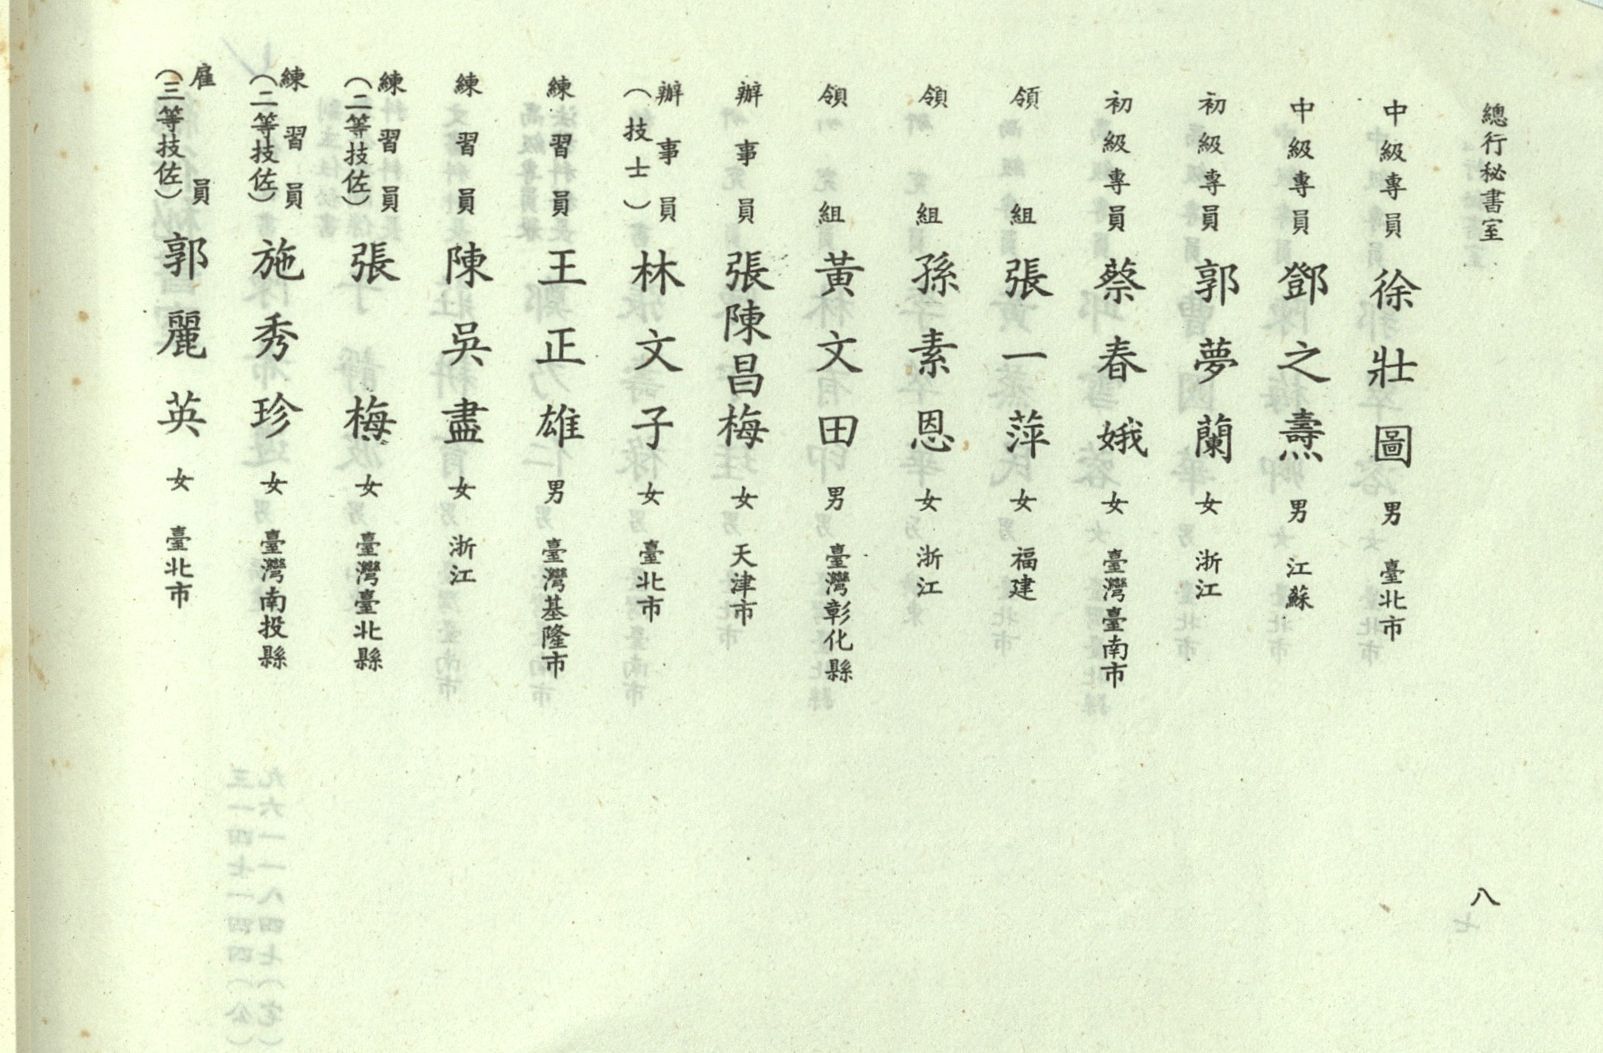 總行秘書室
中級專員 徐壯圖 男 臺北市
中級專員 鄧之燾 男 江蘇
初級專員 郭夢蘭 女 浙江
初級專員 蔡春娥 女 臺灣臺南市
領組 張一萍 女 福建
領組 孫素恩 女 浙江
領組 黃文田 男 臺灣彰化縣
辦事員 張陳昌梅 女 天津市
辦事員(技士) 林文子 女 臺北市
練習員 王正雄 男 臺灣基隆市
練習員 陳吳盡 女 浙江
練習員(二等技佐) 張梅 女 臺灣臺北縣
練習員(二等技佐) 施秀珍 女 臺灣南投縣
雇員(三等技佐) 郭麗英 女 臺北市
八